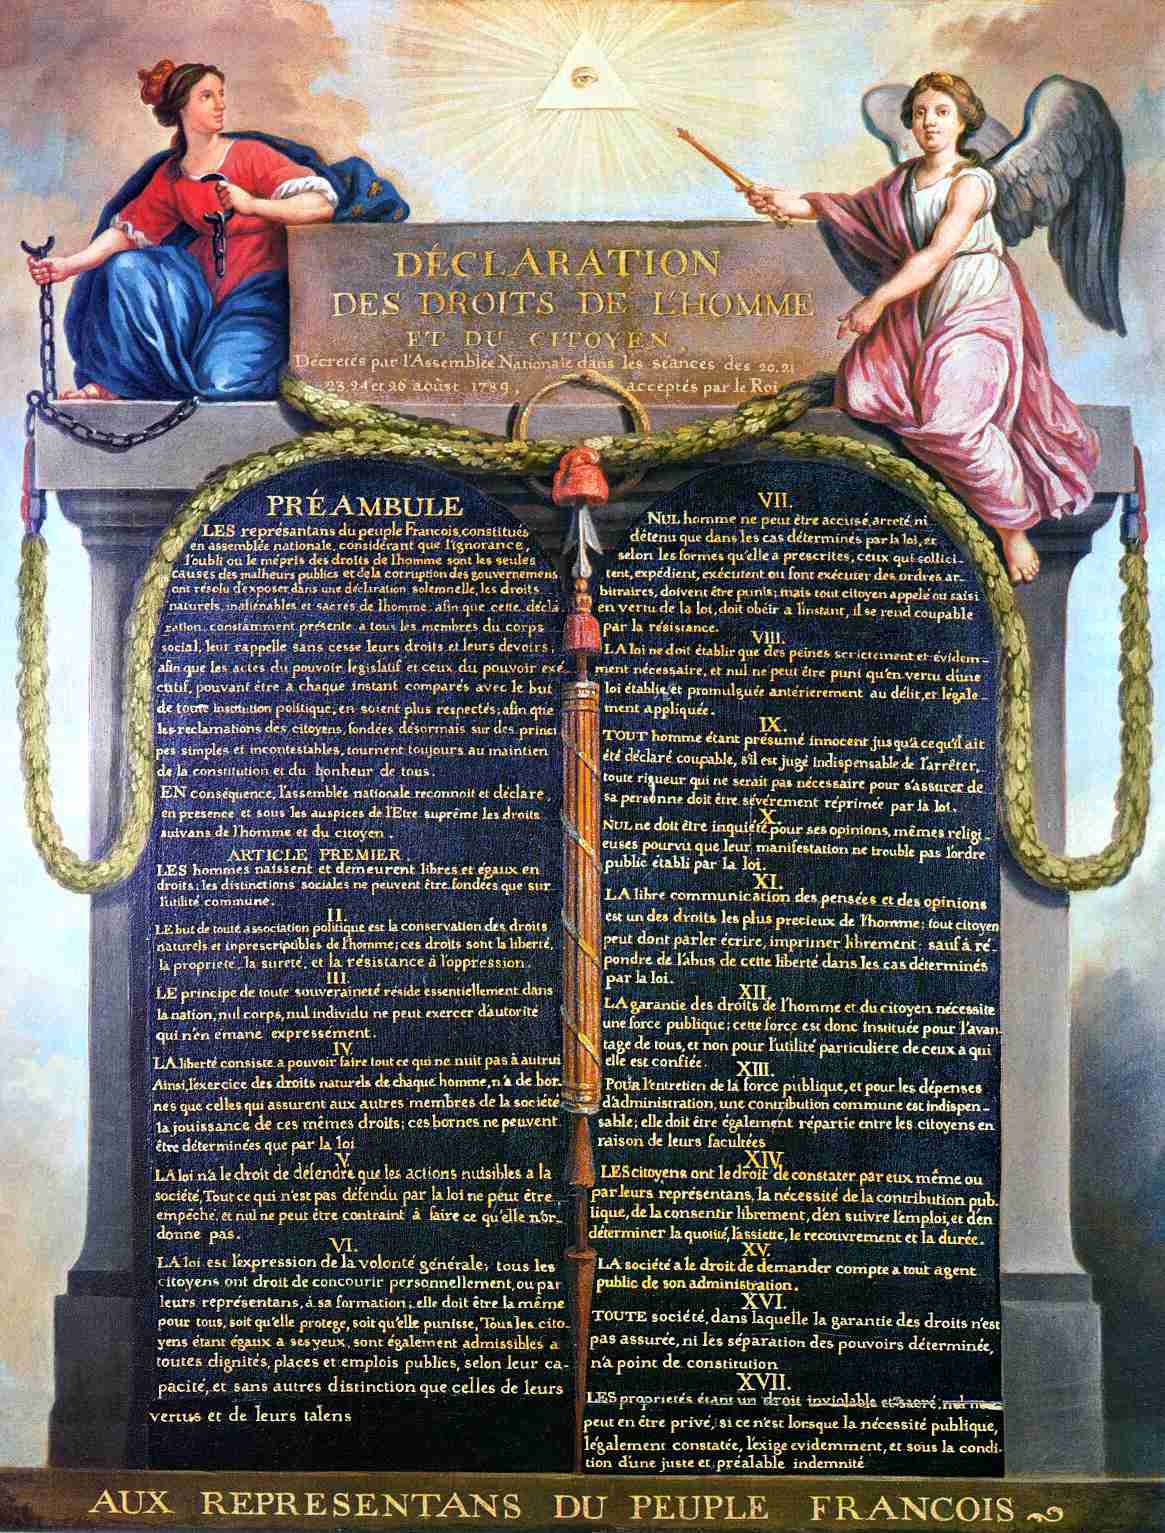 DÉCLARATION
DES DROITS DE L'HOMME
ET DU CITOYEN,
Décretés par l'Assemblée Nationale dans les séances des 20. 21
23. 24 et 26 août 1789, acceptés par le Roi
PRÉAMBULE
LES représantans du peuple Francois, constitués
en assemblée nationale, considérant que l'ignorance,
l'oubli ou le mépris des droits de l'homme sont les seules
causes des malheurs publics et de la corruption des gouvernemens
ont résolu d'exposer dans une déclaration solemnelle, les droits
naturels, inaliénables et sacrés de l'homme: afin que cette décla
ration, constamment présente a tous les membres du corps
social, leur rappelle sans cesse leurs droits et leurs devoirs;
afin que les actes du pouvoir legislatif et ceux du pouvoir exé
cutif, pouvant être a chaque instant comparés avec le but
de toute institution politique, en soient plus respectés; afin que
les reclamations des citoyens, fondées désormais sur des princi
pes simples et incontestables, tournent toujours au maintien
de la constitution et du bonheur de tous.
EN conséquence, l'assemblée nationale reconnoit et déclare,
en presence et sous les auspices de l'Etre suprême les droits
suivans de l'homme et du citoyen.
ARTICLE PREMIER.
LES hommes naissent et demeurent libres et égaux en
droits; les distinctions sociales ne peuvent être fondées que sur
l'utilité commune.
II.
LE but de toute association politique est la conservation des droits
naturels et inprescriptibles de l'homme; ces droits sont la liberté,
la propriete, la sureté, et la résistance à l'oppression.
III.
LE principe de toute souveraineté réside essentiellement dans
la nation, nul corps, nul individu ne peut exercer d'autorité
qui n'en emane expressément.
IV.
LA liberté consiste a pouvoir faire tout ce qui ne nuit pas à autrui
Ainsi, l'exercice des droits naturels de chaque homme, n'a de bor-
nes que celles qui assurent aux autres membres de la société
la jouissance de ces mêmes droits; ces bornes ne peuvent
être déterminées que par la loi
V.
LA loi n'a le droit de défendre que les actions nuisibles a la
société, Tout ce qui n'est pas défendu par la loi ne peut être
empêché, et nul ne peut être contraint à faire ce qu'elle n'or-
donne pas.
VI.
LA loi est l'expression de la volonté générale; tous les
citoyens ont droit de concourir personnellement, ou par
leurs représentans, à sa formation; elle doit être la même
pour tous, soit qu'elle protege, soit qu'elle punisse, Tous les cito-
yens étant égaux à ses yeux, sont également admissibles a
toutes dignités, places et emplois publics, selon leur ca-
pacité, et sans autres distinction que celles de leurs
vertus et de leurs talens
VII.
NUL homme ne peut être accusé, arreté, ni
détenu que dans les cas déterminés par la loi, et
selon les formes qu'elle a prescrites, ceux qui sollici-
tent, expédient, exécutent ou font exécuter des ordres ar-
bitraires, doivent être punis; mais tout citoyen appelé ou saisi
en vertu de la loi, doit obéir a l'instant, il se rend coupable
par la résistance.
VIII.
LA loi ne doit établir que des peines strictement et évidem-
ment nécessaire, et nul ne peut être puni qu'en vertu d'une
loi établie et promulguée antérierement au délit, et légale-
ment appliquée.
IX.
TOUT homme étant présumé innocent jusqu'a ce qu'il ait
été déclaré coupable, s'il est jugé indispensable de l'arrêter,
toute rigueur qui ne serait pas nécessaire pour s'assurer de
sa personne doit être sévèrement réprimée par la loi.
X.
NUL ne doit être inquiété pour ses opinions, mêmes religi-
euses pourvu que leur manifestation ne trouble pas l'ordre
public établi par la loi.
XI.
LA libre communication des pensées et des opinions
est un des droits les plus precieux de l'homme; tout citoyen
peut dont parler écrire, imprimer librement; sauf à ré-
pondre de l'abus de cette liberté dans les cas déterminés
par la loi.
XII.
LA garantie des droits de l'homme et du citoyen nécessite
une force publique; cette force est donc instituée pour l'avan-
tage de tous, et non pour l'utilité particuliere de ceux a qui
elle est confiée.
XIII.
POUR l'entretien de la force publique, et pour les dépenses
d'administration, une contribution commune est indispen-
sable; elle doit être également répartie entre les citoyens en
raison de leurs facultées
XIV.
LES citoyens ont le droit de constater par eux même ou
par leurs représentans, la nécessité de la contribution pub-
lique, de la consentir librement, d'en suivre l'emploi, et d'en
déterminer la quotité, l'assiette, le recouvrement et la durée.
XV.
LA société a le droit de demander compte a tout agent
public de son administration.
XVI.
TOUTE société, dans laquelle la garantie des droits n'est
pas assurée, ni les séparation des pouvoirs déterminée,
n'a point de constitution
XVII.
LES proprietés étant un droit inviolable et sacré, nul ne
peut en être privé, si ce n'est lorsque la nécessité publique,
légalement constatée, l'exige evidemment, et sous la condi-
tion d'une juste et préalable indemnité
AUX REPRESENTANS DU PEUPLE FRANCOIS